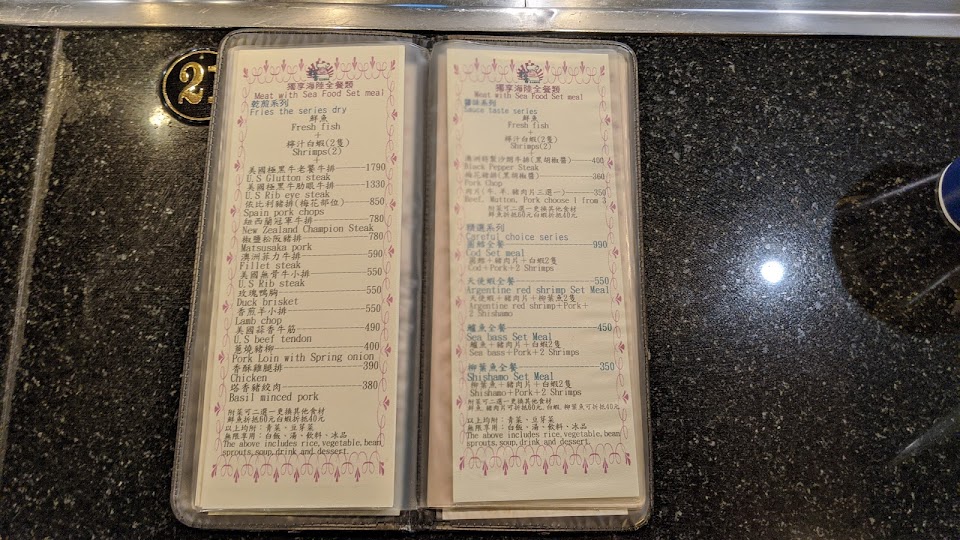 2
獨享海陸全餐類
Meat with Sea Food Set meal
乾煎系列
Fries the series dry
鮮魚
Fresh fish
+
檸汁白蝦(2隻)
Shrimps(2)
+
美國極黑牛老饕牛排 1790
U.S Glutton steak
美國極黑牛肋眼牛排 1330
U.S Rib eye steak
依比利豬排(梅花部位) 850
Spain pork chops
紐西蘭冠軍牛排 780
New Zealand Champion Steak
椒鹽松阪豬排 780
Matsusaka pork
澳洲菲力牛排 590
Fillet steak
美國無骨牛小排 550
U.S Rib steak
玫瑰鴨胸 550
Duck brisket
香煎羊小排 550
Lamb chop
美國蒜香牛筋 490
U.S beef tendon
蔥燒豬柳 400
Pork Loin with Spring onion
香酥雞腿排 390
Chicken
塔香豬絞肉 380
Basil minced pork
附菜可二選一更換其他食材
鮮魚折抵60元白蝦折抵40元
以上均附：青菜、豆芽菜
無限享用：白飯、湯、飲料、冰品
The above includes rice,vegetable,bean
sprouts,soup,drink and dessert
獨享海陸全餐類
Meat with Sea Food Set meal
醬味系列
Sauce taste series
鮮魚
Fresh fish
+
檸汁白蝦(2隻)
Shrimps(2)
+
澳洲特製沙朗牛排(黑胡椒醬) 400
Black Pepper Steak
梅花豬排(黑胡椒醬) 360
Pork Chop
肉片(牛、羊、豬肉片三選一) 350
Beef, Mutton, Pork choose 1 from 3
附菜可二選一更換其他食材
鮮魚折抵60元白蝦折抵40元
精選系列
Careful choice series
圓鱈全餐 990
Cod Set meal
圓鱈＋豬肉片＋白蝦2隻
Cod＋Pork＋2 Shrimps
天使蝦全餐 550
Argentine red shrimp Set Meal
天使蝦＋豬肉片＋柳葉魚2隻
Argentine red shrimp＋Pork＋
2 Shishamo
鱸魚全餐 450
Sea bass Set Meal
鱸魚＋豬肉片＋白蝦2隻
Sea bass＋Pork＋2 Shrimps
柳葉魚全餐 350
Shishamo Set Meal
柳葉魚＋豬肉片＋白蝦2隻
Shishamo＋Pork＋2 Shrimps
附菜可二選一更換其他食材
鮮魚、豬肉片可折抵60元、白蝦、柳葉魚可折抵40元
以上均附：青菜、豆芽菜
無限享用：白飯、湯、飲料、冰品
The above includes rice,vegetable,bean
sprouts,soup,drink and dessert